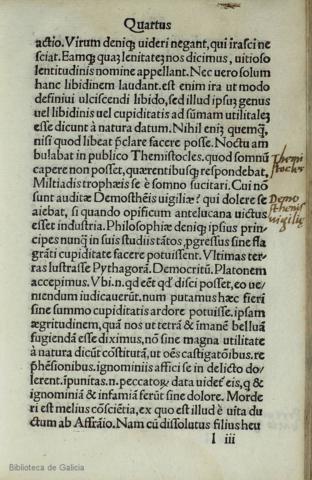 Quartus
actio. Virum deniq; uideri negant, qui irasci ne
sciat. Eamq; quaʒ lenitateʒ nos dicimus, uitioso
lentitudinis nomine appellant. Nec uero solum
hanc libidinem laudant. est enim ira ut modo
definiui ulciscendi libido, sed illud ipsuʒ genus
uel libidinis uel cupiditatis ad sūmam utilitateʒ
esse dicunt à natura datum. Nihil eniʒ quemq̃,
nisi quod libeat p̄clare facere posse. Noctu am
bulabat in publico Themistocles. quod somnū
capere non posset, quærentibusq; respondebat,
Miltiadis trophæis se è somno sucitari. Cui nō
sunt auditæ Demosthēis uigiliæ? qui dolere se
aiebat, si quando opificum antelucana uictus
esset industria. Philosophiæ deniq; ipsius prin-
cipes nunq̃ in suis studiis tātos, pgressus sine fla
grāti cupiditate facere potuissent. Vltimas ter-
ras lustrasse Pythagorā. Democritū. Platonem
accepimus. Vbi .n. qd eēt qd̓ disci posset, eo ue-
niendum iudicauerūt. num putamus hæc fieri
sine summo cupiditatis ardore potuisse. ipsam
ægritudinem, quā nos ut tetrā & īmanē belluā
fugiendā esse diximus, nō sine magna utilitate
à natura dicūt cōstitutā, ut oēs castigatōibus. re
p̄hēsionibus. ignominiis affici se in delicto do-
lerent. īpunitas .n. peccatoꝝ data uidet̄ eis, q &
ignominiā & infamiā ferūt sine dolore. Morde
ri est melius cōsciētia, ex quo est illud è uita du
ctum ab Affrāio. Nam cū dissolutus filius heu
l iii
Themi
stocles
Demo
sthenis
uigilię
Biblioteca de Galicia